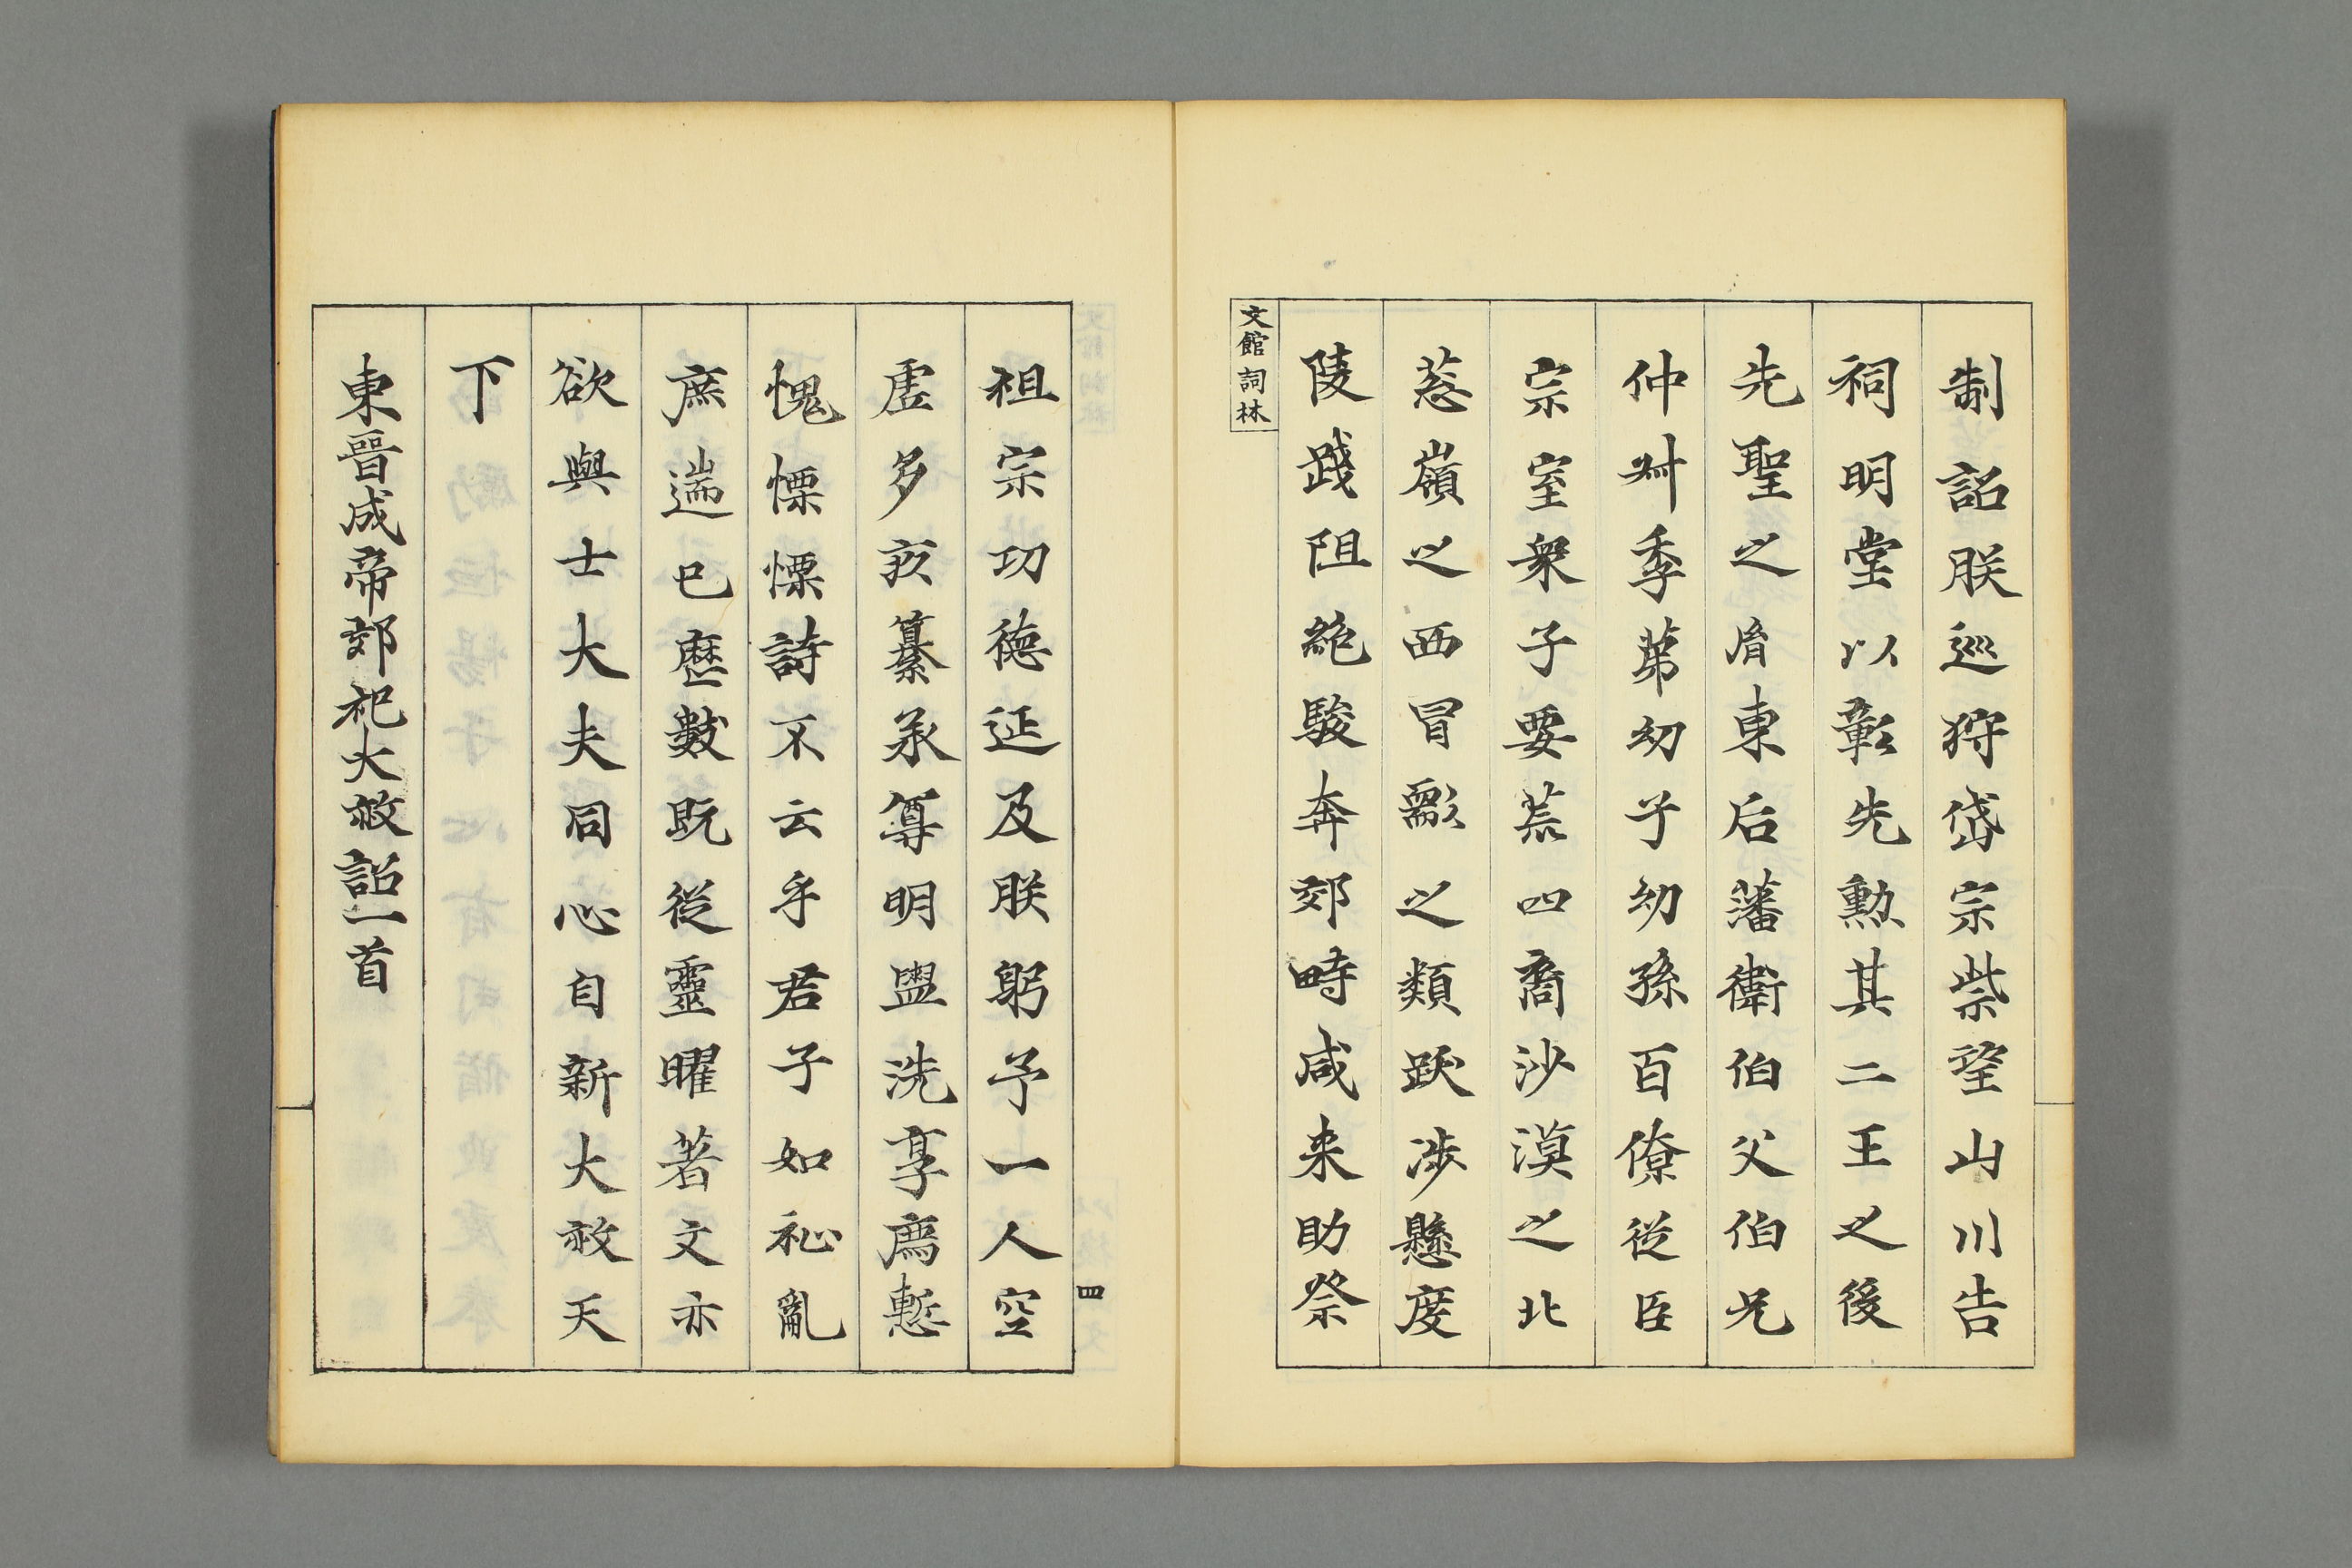 制詔朕巡狩岱宗柴望山川告
祠明堂以彰先勲其二王之後
先聖之胤東后藩衛伯父伯兄
仲叔季弟幼子幼孫百僚従臣
宗室衆子要荒四裔沙漠之北
葱嶺之西冒耏之類跋渉懸度
陵踐阻絶駿奔郊畤咸来助祭
文館詞林
祖宗功德延及朕躬予一人空
虚多疚纂承尊明盥洗享薦慙
愧慄慄詩不云乎君子如祉亂
庶遄已歴數既從靈曜著文亦
欲與士大夫同心自新大赦天
下
東晉成帝郊祀大赦詔一首
四